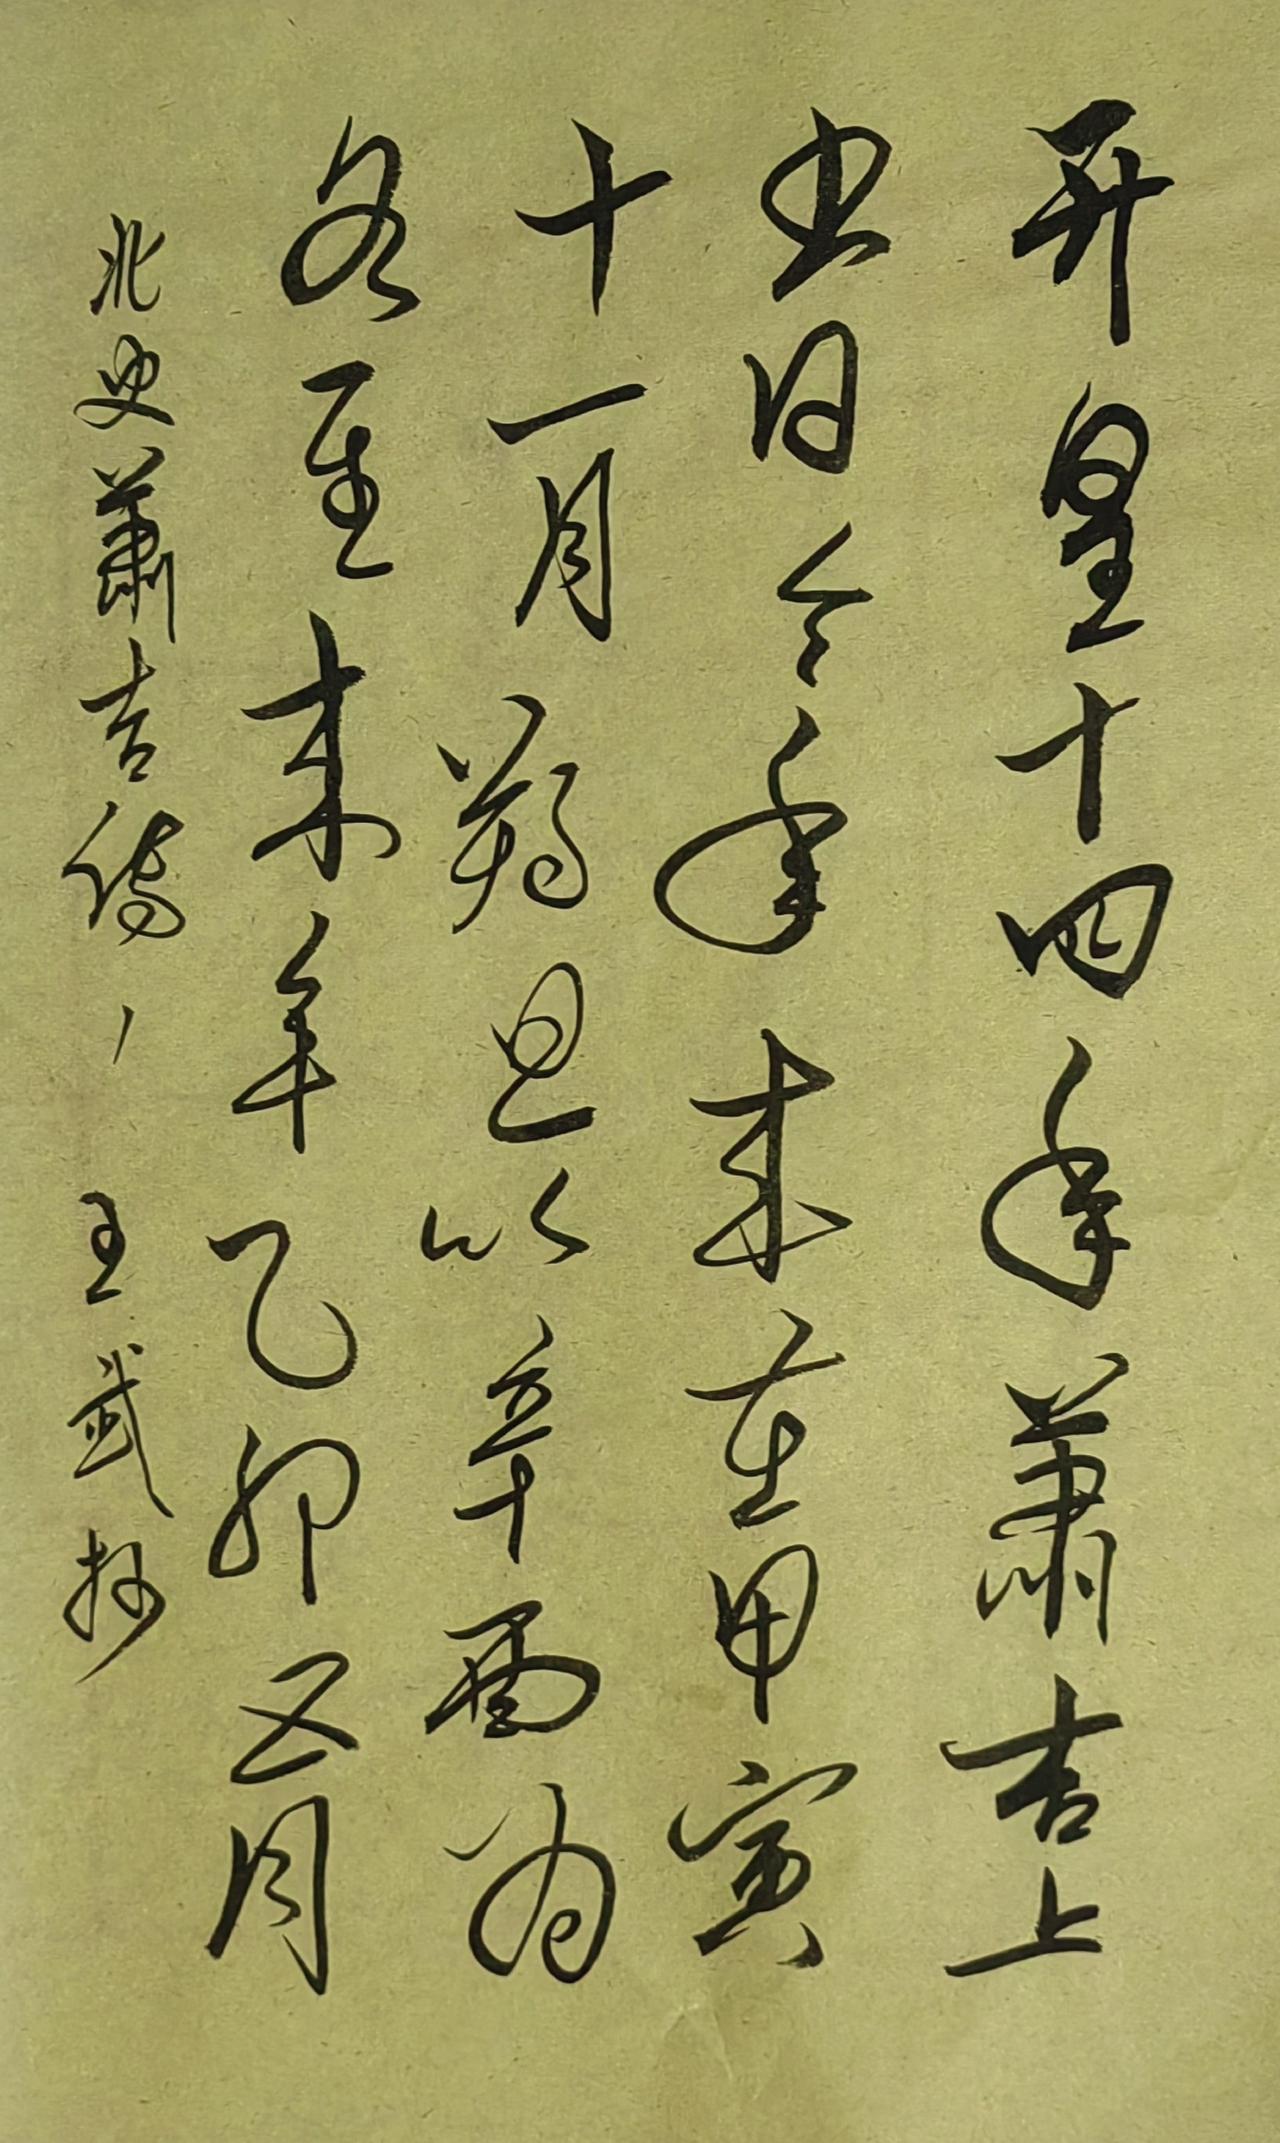 开皇十四年萧吉上
书曰今年来在甲寅
十一月朔旦以辛酉为
冬至来年乙卯五月
北史萧吉传
王武抄